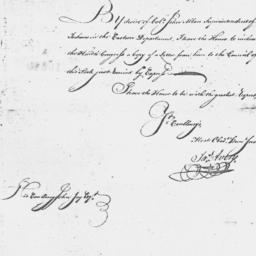 By Advice of Colo. John Allan Superintendent of
Indians in the Eastern Department, I have the Honor to inclose
the Honble. Congress a Copy of a Letter from him to the Council of
this State just received by Express
I have the Honor to be with the greatest
Yr.
Excellencys
Most Obedt. Hum.
Jno. Avery
His Excellency John Jay Esqr.